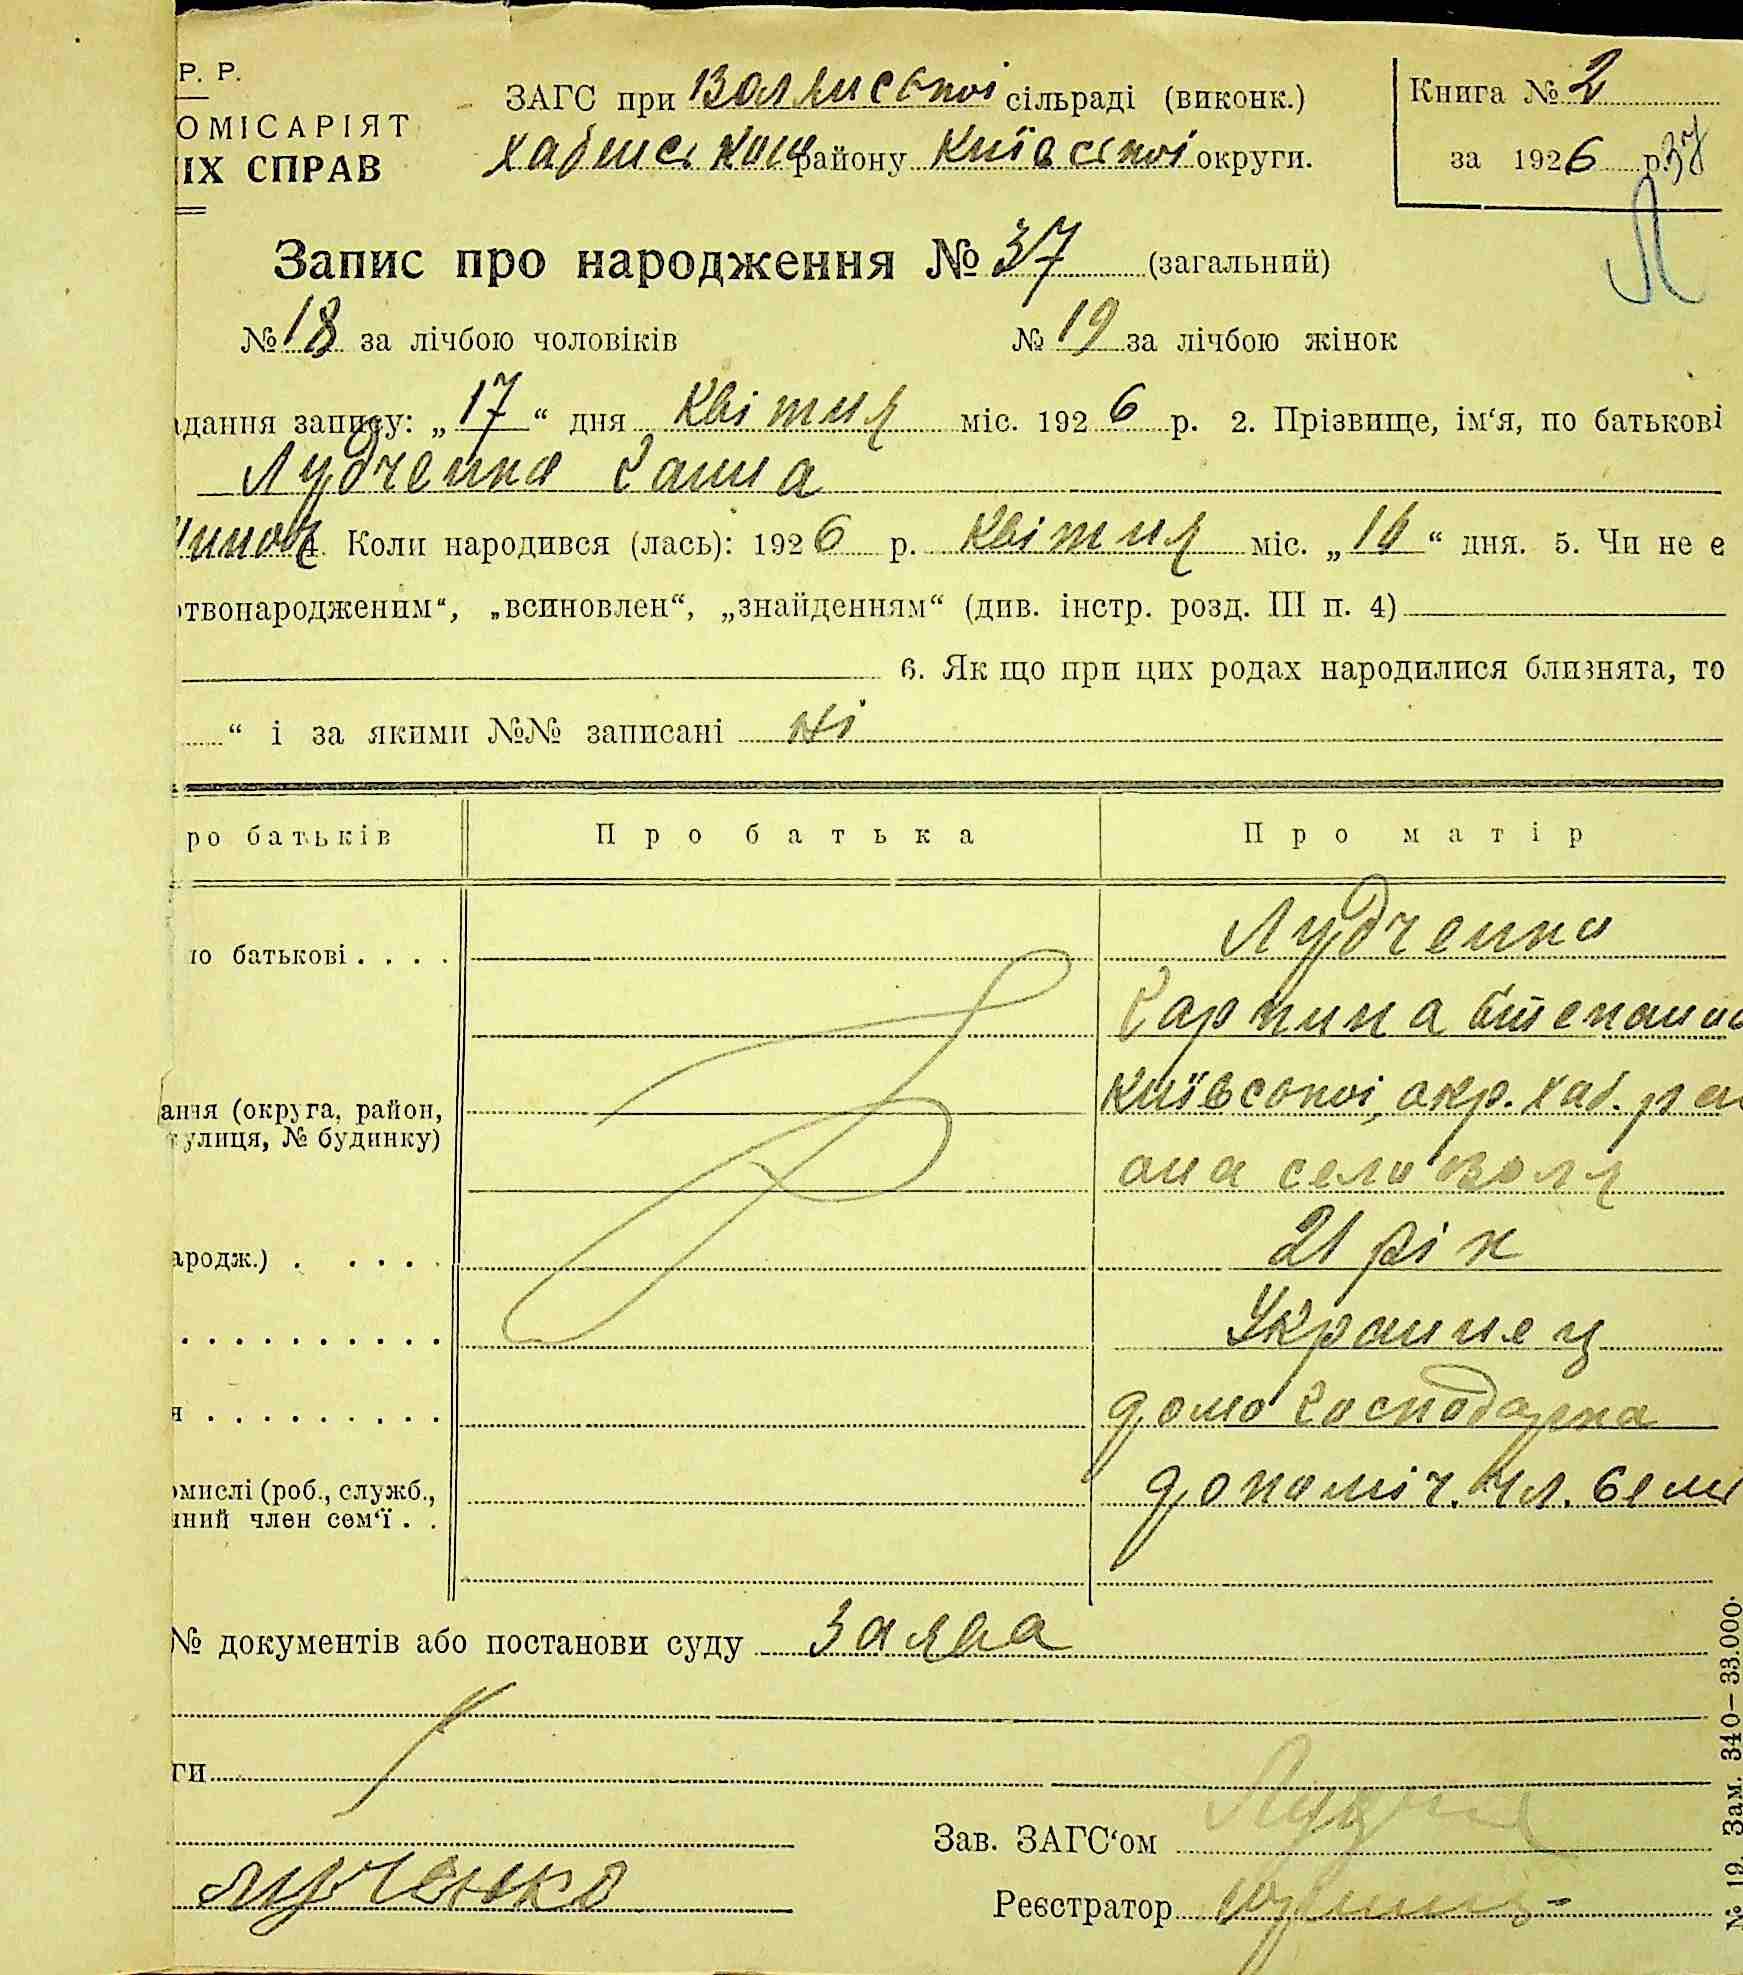 Р. Р.
ОМІСАРІЯТ
ІХ СПРАВ
ЗАГС при Воллиської сільраді (виконк.)
району Київської округи.
Книга № 2
за 1926 р. 37
Л
Запис про народження № 37 (загальний)
№ 18 за лічбою чоловіків № 19 за лічбою жінок
дання запису: „17“ дня Квітня міс. 1926 р. 2. Прізвище, ім‘я, по батькові
Лудченко Ганна
4. Коли народився (лась): 1926 р. Квітня міс. „16“ дня. 5. Чи не є
твонародженим“, „всиновлен“, „знайденням“ (див. інстр. розд. III п. 4)
6. Як що при цих родах народилися близнята, то
“ і за якими №№ записані ні
ро батьків Про батька Про матір
о батькові . . . . Лудченко
Гарпина Степанов
ання (округа, район, Київської окр. Хаб. рай
улиця, № будинку)
она село Воля
ародж.) . . . . . 21 рік
Украинец
я домо Господарка
омислі (роб., служб., допоміч. чл. семї
ний член сем‘ї . .
№ документів або постанови суду Заява
ги
Зав. ЗАГС‘ом
Лудченко
Реєстратор
№ 19. Зам. 340—33.000.